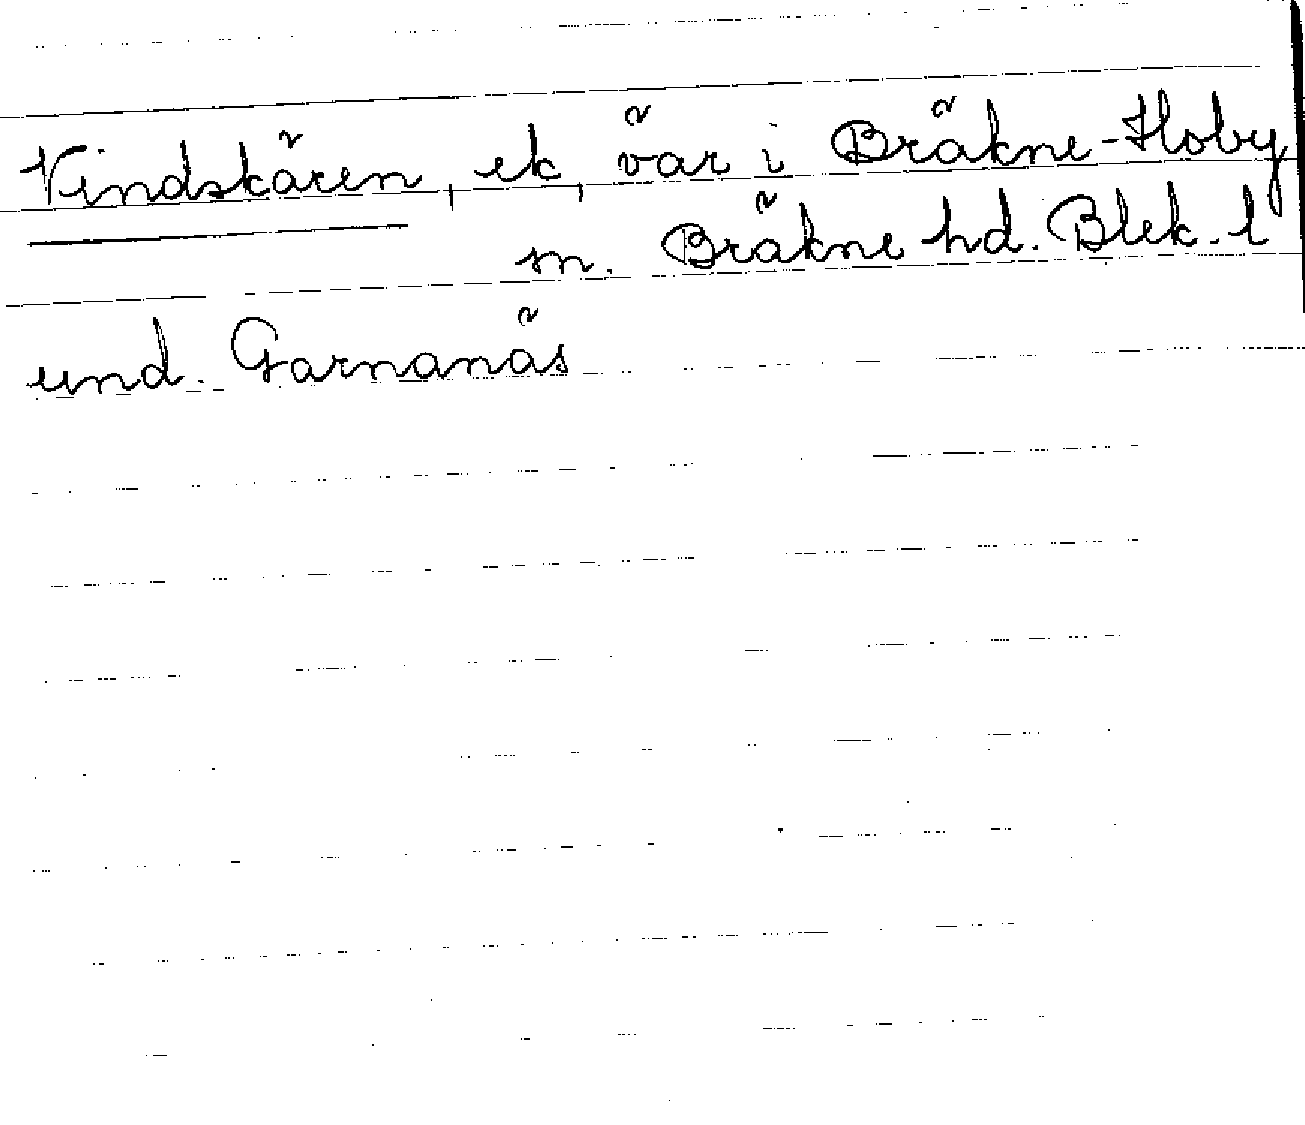 Vindskären, ek, vär i Bräkne-Hoby
sn. Bräkne hd. Blek. l
und. Garnanäs